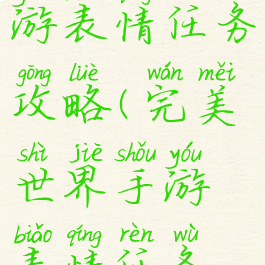 游表情任务
gōng lüè wán měi
攻略(完美
shì jiè shǒu yóu
世界手游
biǎo qíng rèn wù
表情任务